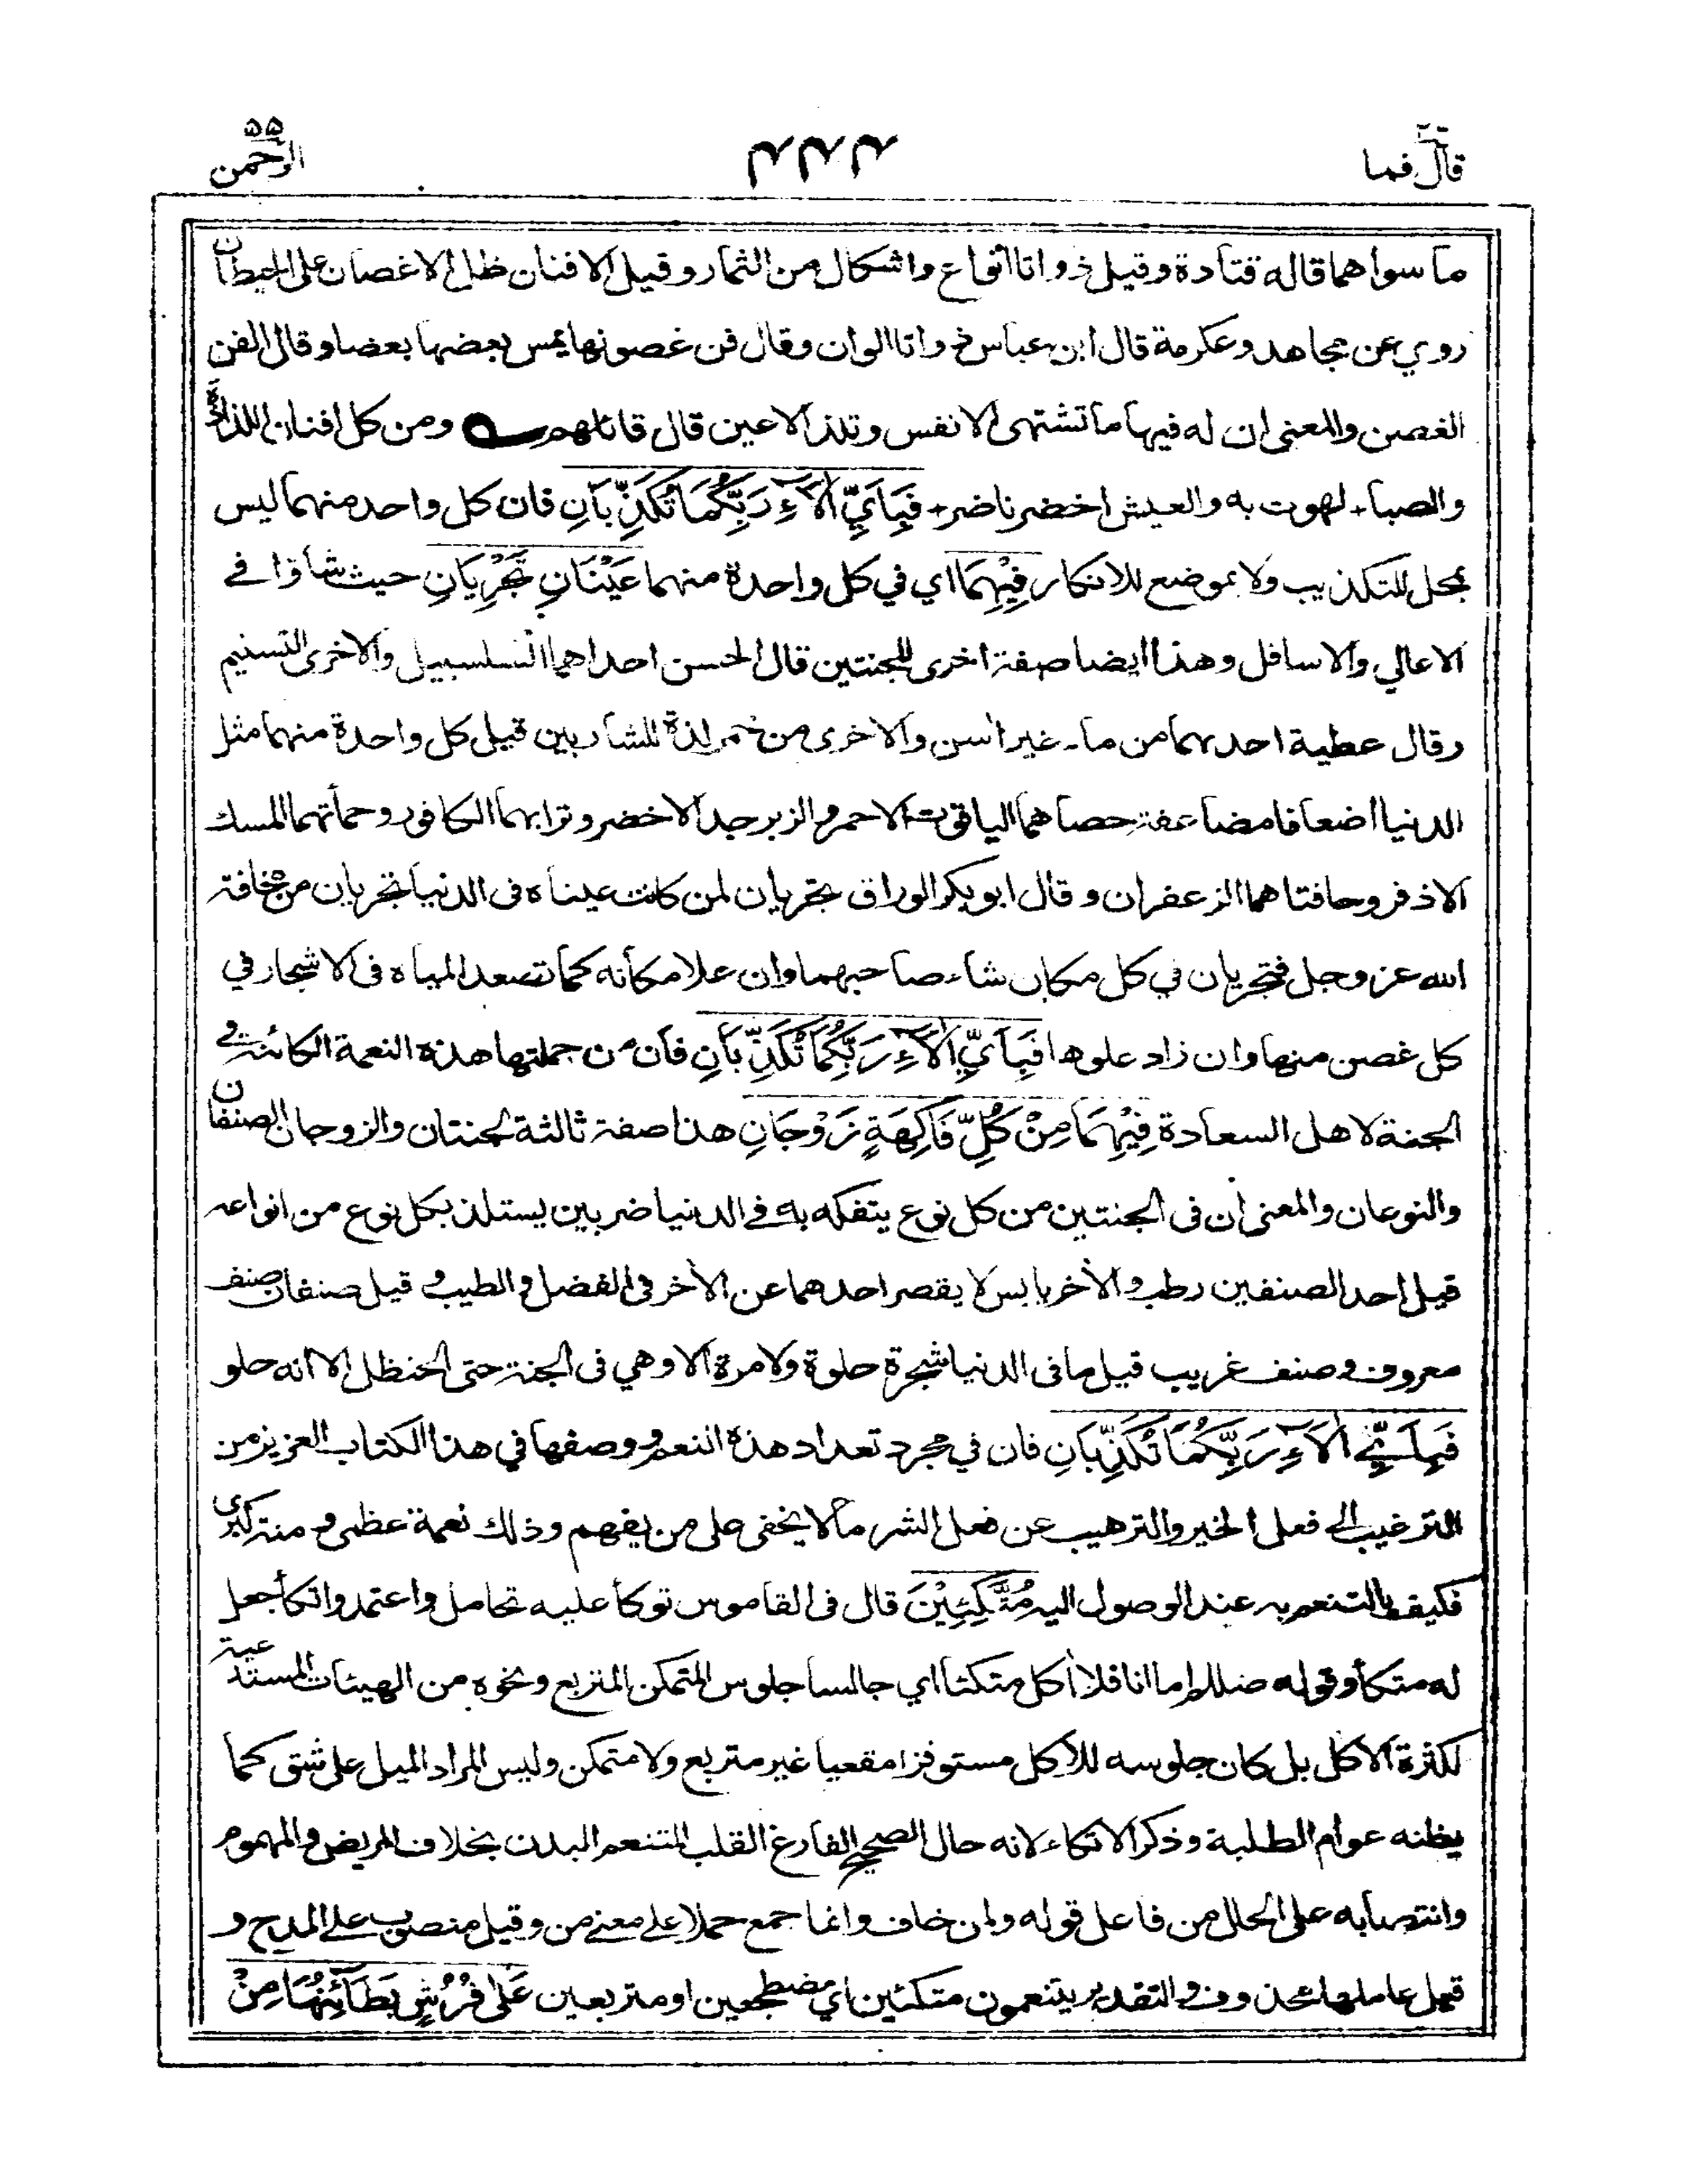 قال فما
الرحمن ۵۵
ما سواهما قاله قتادة وقيل ذواتا انواع واشكال من الثمار وقيل الافنان ظل الاغصان على الحيطان
روي عن مجاهد وعكرمة قال ابن عباس ذواتا الوان وقال فن غصونها يمس بعضها بعضا وقال الفن
الغصن والمعنى ان له فيها ما تشتهى الانفس وتلذ الاعين قال قائلهم ومن كل افنان اللذاذة
والصباء لهوت به والعيش اخضر ناضر + فَبِأَيِّ اٰلَآءِ رَبِّكُمَا تُكَذِّبَانِ فان كل واحد منهما ليس
بمحل للتكذيب ولا بموضع للانكار فِيْهِمَا اي في كل واحدة منهما عَيْنَانِ تَجْرِيَانِ حيث شاؤا في
الاعالي والاسافل وهذا ايضا صفة اخرى للجنتين قال الحسن احداهما السلسبيل والاخرى التسنيم
وقال عطية احدهما من ماء غير اٰسن والاخرى من خمر لذة للشاربين قيل كل واحدة منهما مثل
الدنيا اضعافا مضاعفة حصاهما الياقوت الاحمر والزبرجد الاخضر وترابهما الكافور وحمأتهما المسك
الاذفر وحافتاهما الزعفران وقال ابو بكر الوراق تجريان لمن كانت عيناه فى الدنيا تجريان من مخافة
الله عز وجل فتجريان في كل مكان شاء صاحبهما وان علا مكانه كما تصعد المياه فى الاشجار في
كل غصن منها وان زاد علوها فَبِأَيِّ اٰلَآءِ رَبِّكُمَا تُكَذِّبَانِ فان من جملتها هذه النعمة الكائنة في
الجنة لاهل السعادة فِيْهِمَا مِنْ كُلِّ فَاكِهَةٍ زَوْجَانِ هذا صفة ثالثة لجنتان والزوجان الصنفان
والنوعان والمعنى ان فى الجنتين من كل نوع يتفكه به في الدنيا ضربين يستلذ بكل نوع من انواعه
قيل احد الصنفين رطب والأخر يابس لا يقصر احدهما عن الأخر فى الفضل والطيب وقيل صنفان صنف
معروف وصنف غريب قيل ما فى الدنيا شجرة حلوة ولا مرة الا وهي فى الجنة حتى الحنظل الا انه حلو
فَبِأَيِّ اٰلَآءِ رَبِّكُمَا تُكَذِّبَانِ فان في مجرد تعداد هذه النعم ووصفها في هذا الكتاب العزيز من
الترغيب الى فعل الخير والترهيب عن فعل الشر ما لا يخفى على من يفهم وذلك نعمة عظمى ومنة كبرى
فكيف بالتنعم به عند الوصول اليه مُتَّكِئِيْنَ قال فى القاموس توكأ عليه تحامل واعتمد واتكأ جعل
له متكأ وقوله صللم اما انا فلا أكل متكئا اي جالسا جلوس المتمكن المتربع ونحوه من الهيئات المستدعية
لكثرة الاكل بل كان جلوسه للأكل مستوفزا مقعيا غير متربع ولا متمكن وليس المراد الميل على شق كما
يظنه عوام الطلبة وذكر الاتكاء لانه حال الصحيح الفارغ القلب المتنعم البدن بخلاف المريض والمهموم
وانتصابه على الحال من فاعل قوله ولمن خاف وانما جمع حملا على معنى من وقيل منصوب على المدح و
قيل عاملها محذوف والتقدير يتنعمون متكئين اي مضطجعين او متربعين عَلٰى فُرُشٍ بَطَآئِنُهَا مِنْ